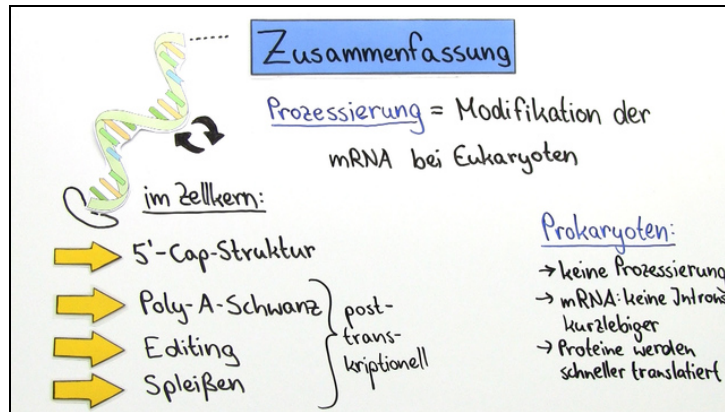 Zusammenfassung
Prozessierung = Modifikation der
mRNA bei Eukaryoten
im Zellkern:
5'-Cap-Struktur
Poly-A-Schwanz
Editing
Spleißen
post-
trans-
kriptionell
Prokaryoten:
→ keine Prozessierung
→ mRNA: keine Introns
kurzlebiger
→ Proteine werden
schneller translatiert